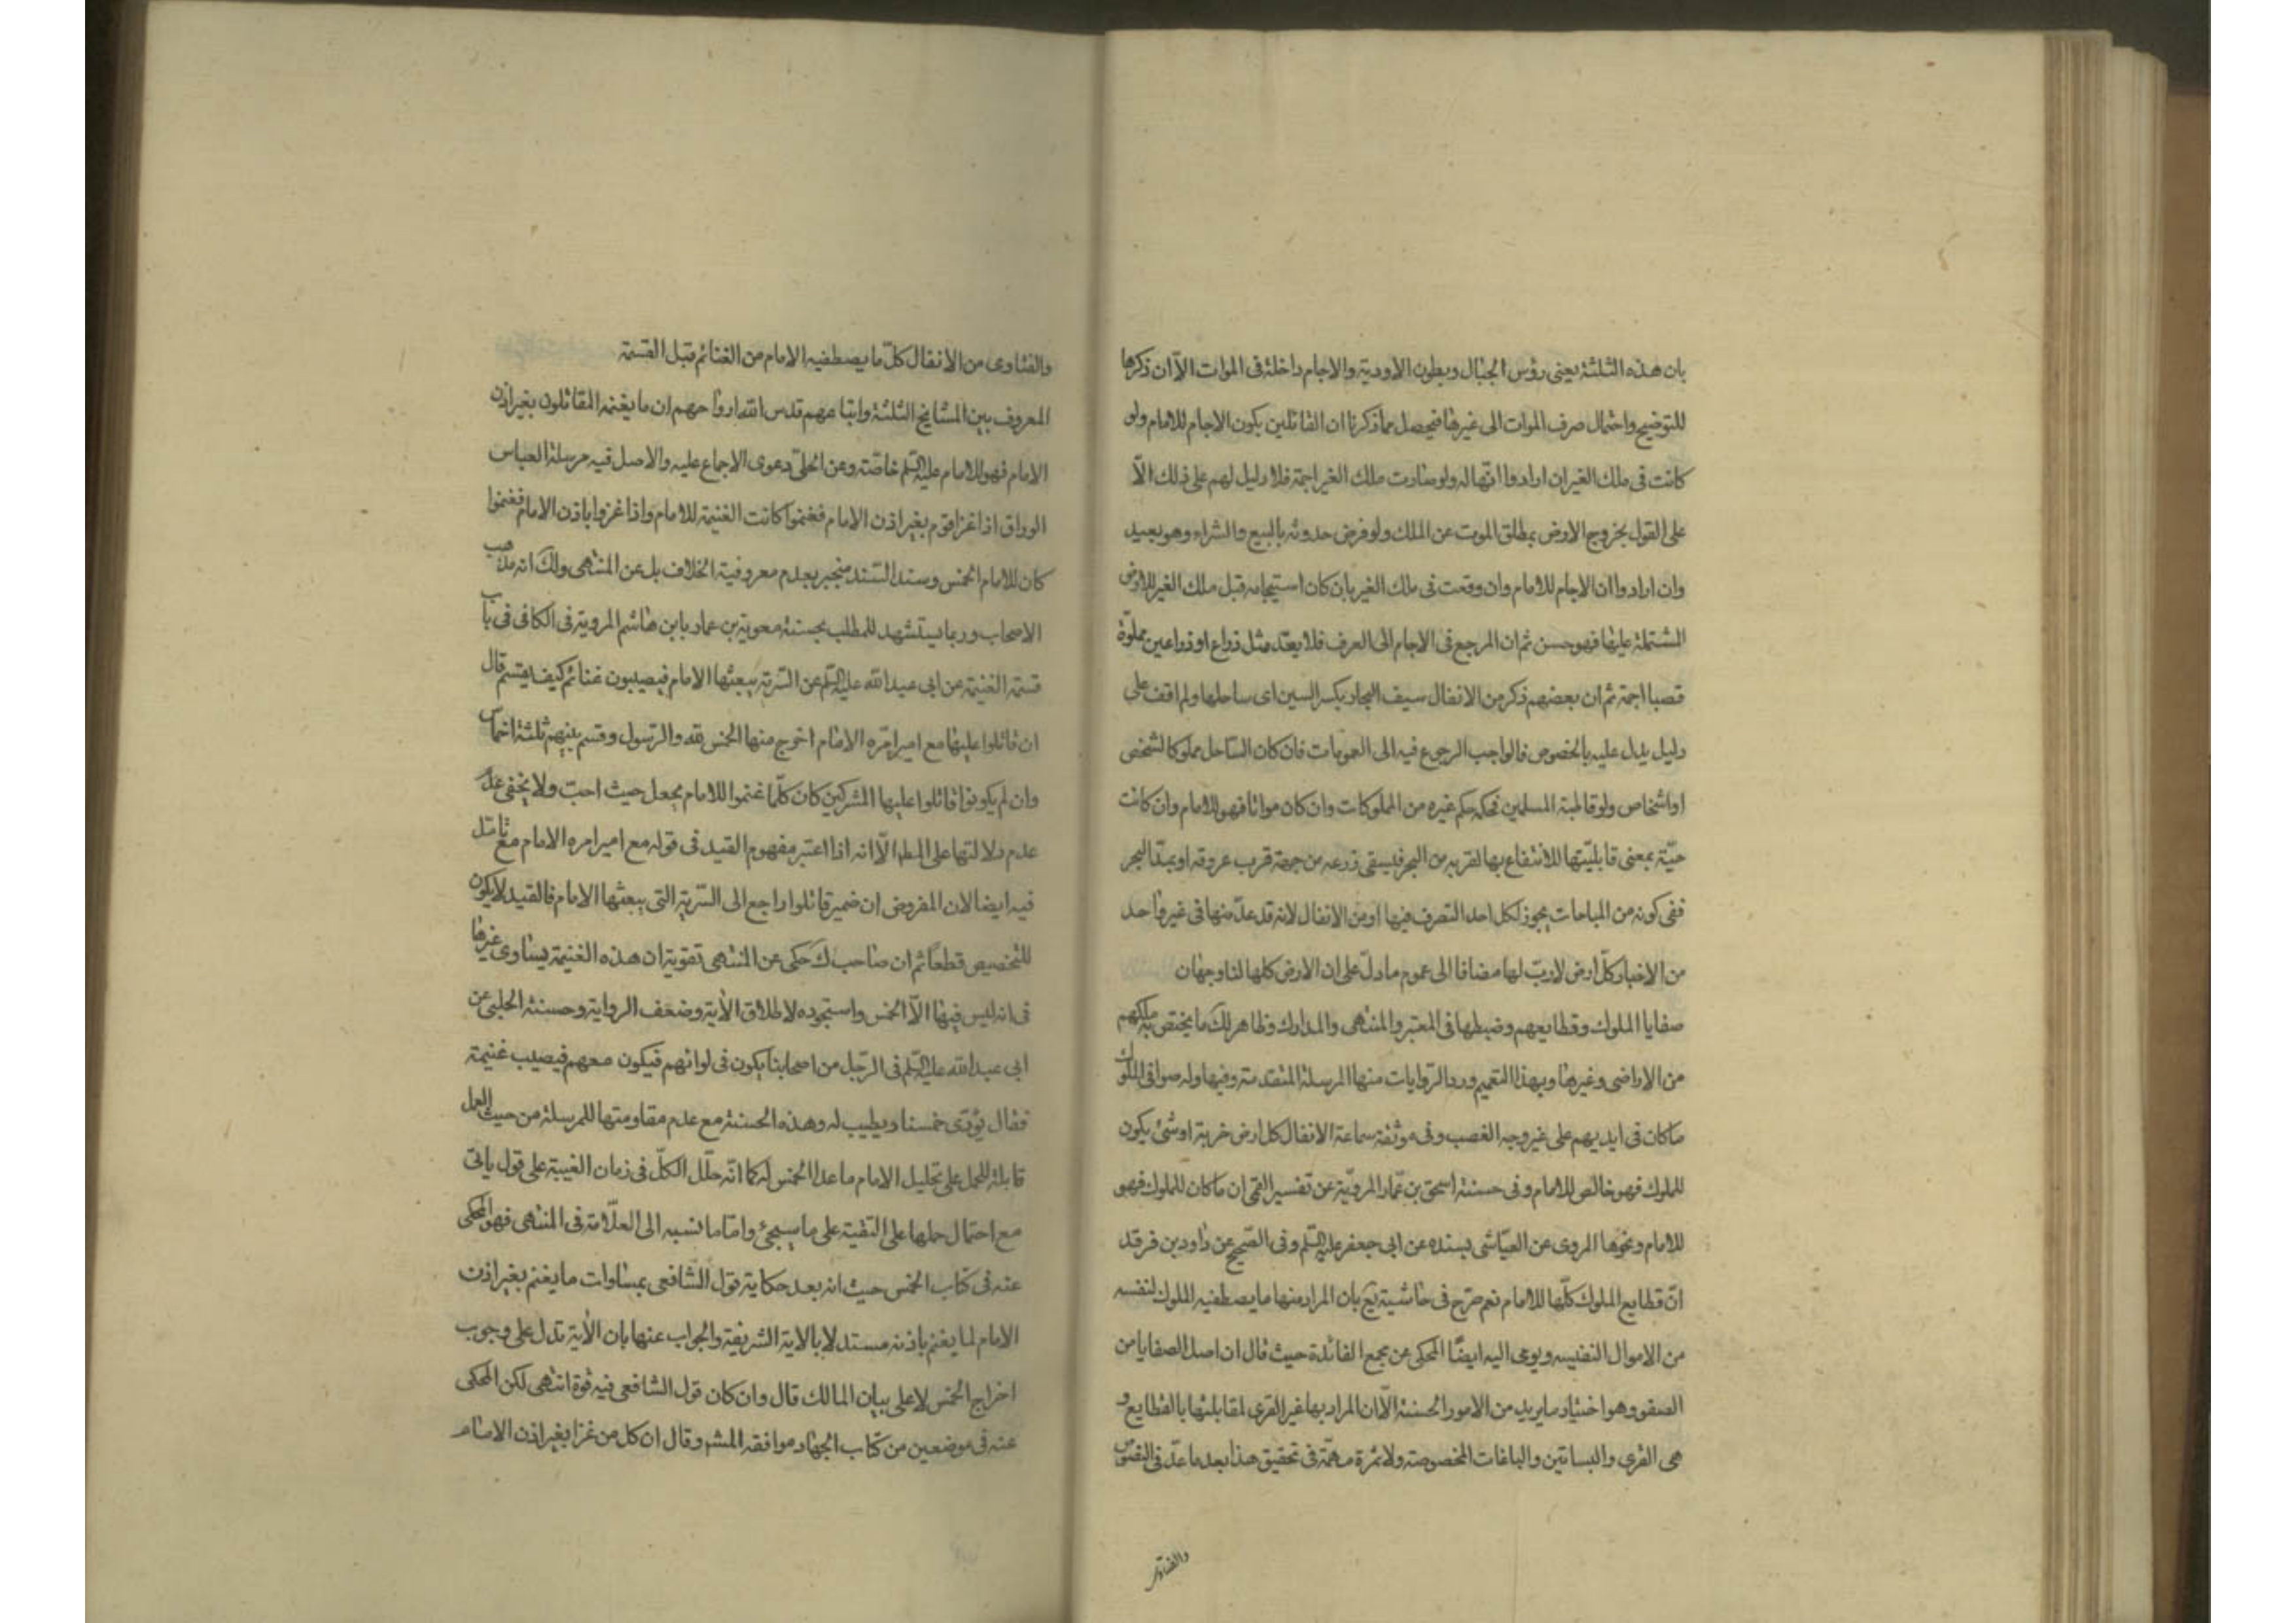 بان هذه الثلثة يعنى رؤس الجبال وبطون الاودية والاجام داخلة فى الموات الّا ان ذكرها
للتوضيح واحتمال صرف الموات الى غيرها فيحصل مما ذكرنا ان القائلين بكون الاجام للامام ولو
كانت فى ملك الغير ان ارادوا انّها له ولو صارت ملك الغير اجمة فلا دليل لهم على ذلك الّا
على القول بخروج الارض بمطلق الموت عن الملك ولو فرض حدوثه بالبيع والشراء وهو بعيد
وان ارادوا ان الاجام للامام وان وقعت فى ملك الغير بان كان استيجامه قبل ملك الغير للارض
المشتملة عليها فهو حسن ثم ان المرجع فى الاجام الى العرف فلا يعدّ مثل ذراع او ذراعين مملوّة
قصبا اجمة ثم ان بعضهم ذكر من الانفال سيف البحار بكسر السين اى ساحلها ولم اقف على
دليل يدل عليه بالخصوص فالواجب الرجوع فيه الى العمومات فان كان الساحل مملوكا لشخص
او اشخاص ولو قاطبة المسلمين فحكمه حكم غيره من المملوكات وان كان مواتا فهو للامام وان كانت
حيّة بمعنى قابليّتها للانتفاع بها لقربه من البحر فيسقى زرعه من جهة قرب عروقه او بمدّ البحر
ففى كونه من المباحات يجوز لكل احد التصرف فيها او من الانفال لانه قد عدّ منها فى غير واحد
من الاخبار كلّ ارض لا ربّ لها مضافا الى عموم ما دلّ على ان الارض كلها لنا وجهان
صفايا الملوك وقطايعهم وضبطها فى المعتبر والمنتهى والمدارك وظاهر لك ما يختص به ملكهم
من الاراضى وغيرها وبهذا التعميم ورد الروايات منها المرسلة المتقدمة وفيها وله صوافى الملوك
ما كان فى ايديهم على غير وجه الغصب وفى موثقة سماعة الانفال كل ارض خربة او شئ يكون
للملوك فهو خالص للامام وفى حسنة اسحق بن عمّار المرويّة عن تفسير القمى ان ما كان للملوك فهو
للامام ونحوها المروى عن العيّاشى بسنده عن ابى جعفر عليه السّلم وفى الصّحيح عن داود بن فرقد
انّ قطايع الملوك كلّها للامام نعم صرّح فى حاشية يع بان المراد منها ما يصطفيه الملوك لنفسه
من الاموال النفيسه ويومى اليه ايضًا المحكى عن مجمع الفائدة حيث قال ان اصل الصفايا من
الصفو وهو اختيار ما يريد من الامور الحسنة الّا ان المراد بها غير القرى لمقابلتها بالقطايع و
هى القرى والبساتين والباغات المخصوصة ولا ثمرة مهمّة فى تحقيق هذا بعد ما عدّ فى النصوص
والفتاوى
والفتاوى من الانفال كلّ ما يصطفيه الامام من الغنائم قبل القسمة
المعروف بين المشايخ الثلثة واتباعهم قدس الله ارواحهم ان ما يغنمه المقاتلون بغير اذن
الامام فهو للامام عليه السّلم خاصّة وعن الحلىّ دعوى الاجماع عليه والاصل فيه مرسلة العباس
الوراق اذا غزا قوم بغير اذن الامام فغنموا كانت الغنيمة للامام واذا غزوا باذن الامام فغنموا
كان للامام الخمس وسند السّند منجبر بعدم معروفية الخلاف بل عن المنتهى ولك انه مذهب
الاصحاب وربما يستشهد للمطلب بحسنة معوية بن عمار بابن هاشم المروية فى الكافى فى باب
قسمة الغنيمة عن ابى عبد الله عليه السّلم عن السّرية يبعثها الامام فيصيبون غنائم كيف يقتسم قال
ان قاتلوا عليها مع امير امّره الامام اخرج منها الخمس لله والرّسول وقسم بينهم ثلثة اخماس
وان لم يكونوا قاتلوا عليها المشركين كان كلّما غنموا للامام يجعل حيث احبّ ولا يخفى عدم
عدم دلالتها على المط الّا انه اذا اعتبر مفهوم القيد فى قوله مع امير امره الامام مع تامّل
فيه ايضا لان المفروض ان ضمير قاتلوا راجع الى السّرية التى يبعثها الامام فالقيد لا يكون
للتخصيص قطعًا ثم ان صاحب لك حكى عن المنتهى تقوية ان هذه الغنيمة يساوى غيرها
فى انه ليس فيها الّا الخمس واستجوده لاطلاق الأية وضعف الرواية وحسنة الحلبى عن
ابى عبد الله عليه السّلم فى الرّجل من اصحابنا يكون فى لوائهم فيكون معهم فيصيب غنيمة
فقال يؤدّى خمسنا ويطيب له وهذه الحسنة مع عدم مقاومتها للمرسلة من حيث العمل
قابلة للحمل على تحليل الامام ما عدا الخمس له كما انّه حلّل الكلّ فى زمان الغيبة على قول ياتى
مع احتمال حملها على التقية على ما سيجئ وامّا ما نسبه الى العلّامة فى المنتهى فهو المحكى
عنه فى كتاب الخمس حيث انه بعد حكاية قول الشافعى بمساوات ما يغنم بغير اذن
الامام لما يغنم باذنه مستدلا بالاية الشريفة والجواب عنها بان الأية تدل على وجوب
اخراج الخمس لا على بيان المالك قال وان كان قول الشافعى فيه قوة انتهى لكن المحكى
عنه فى موضعين من كتاب الجهاد موافقه المشم وقال ان كل من غزا بغير اذن الامام